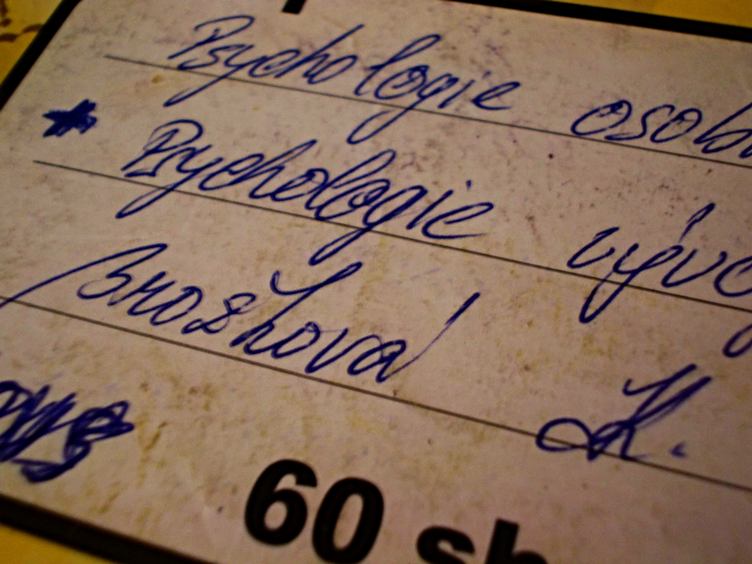 Psychologie osob
Psychologie vývo
Brožková K.
60 sh